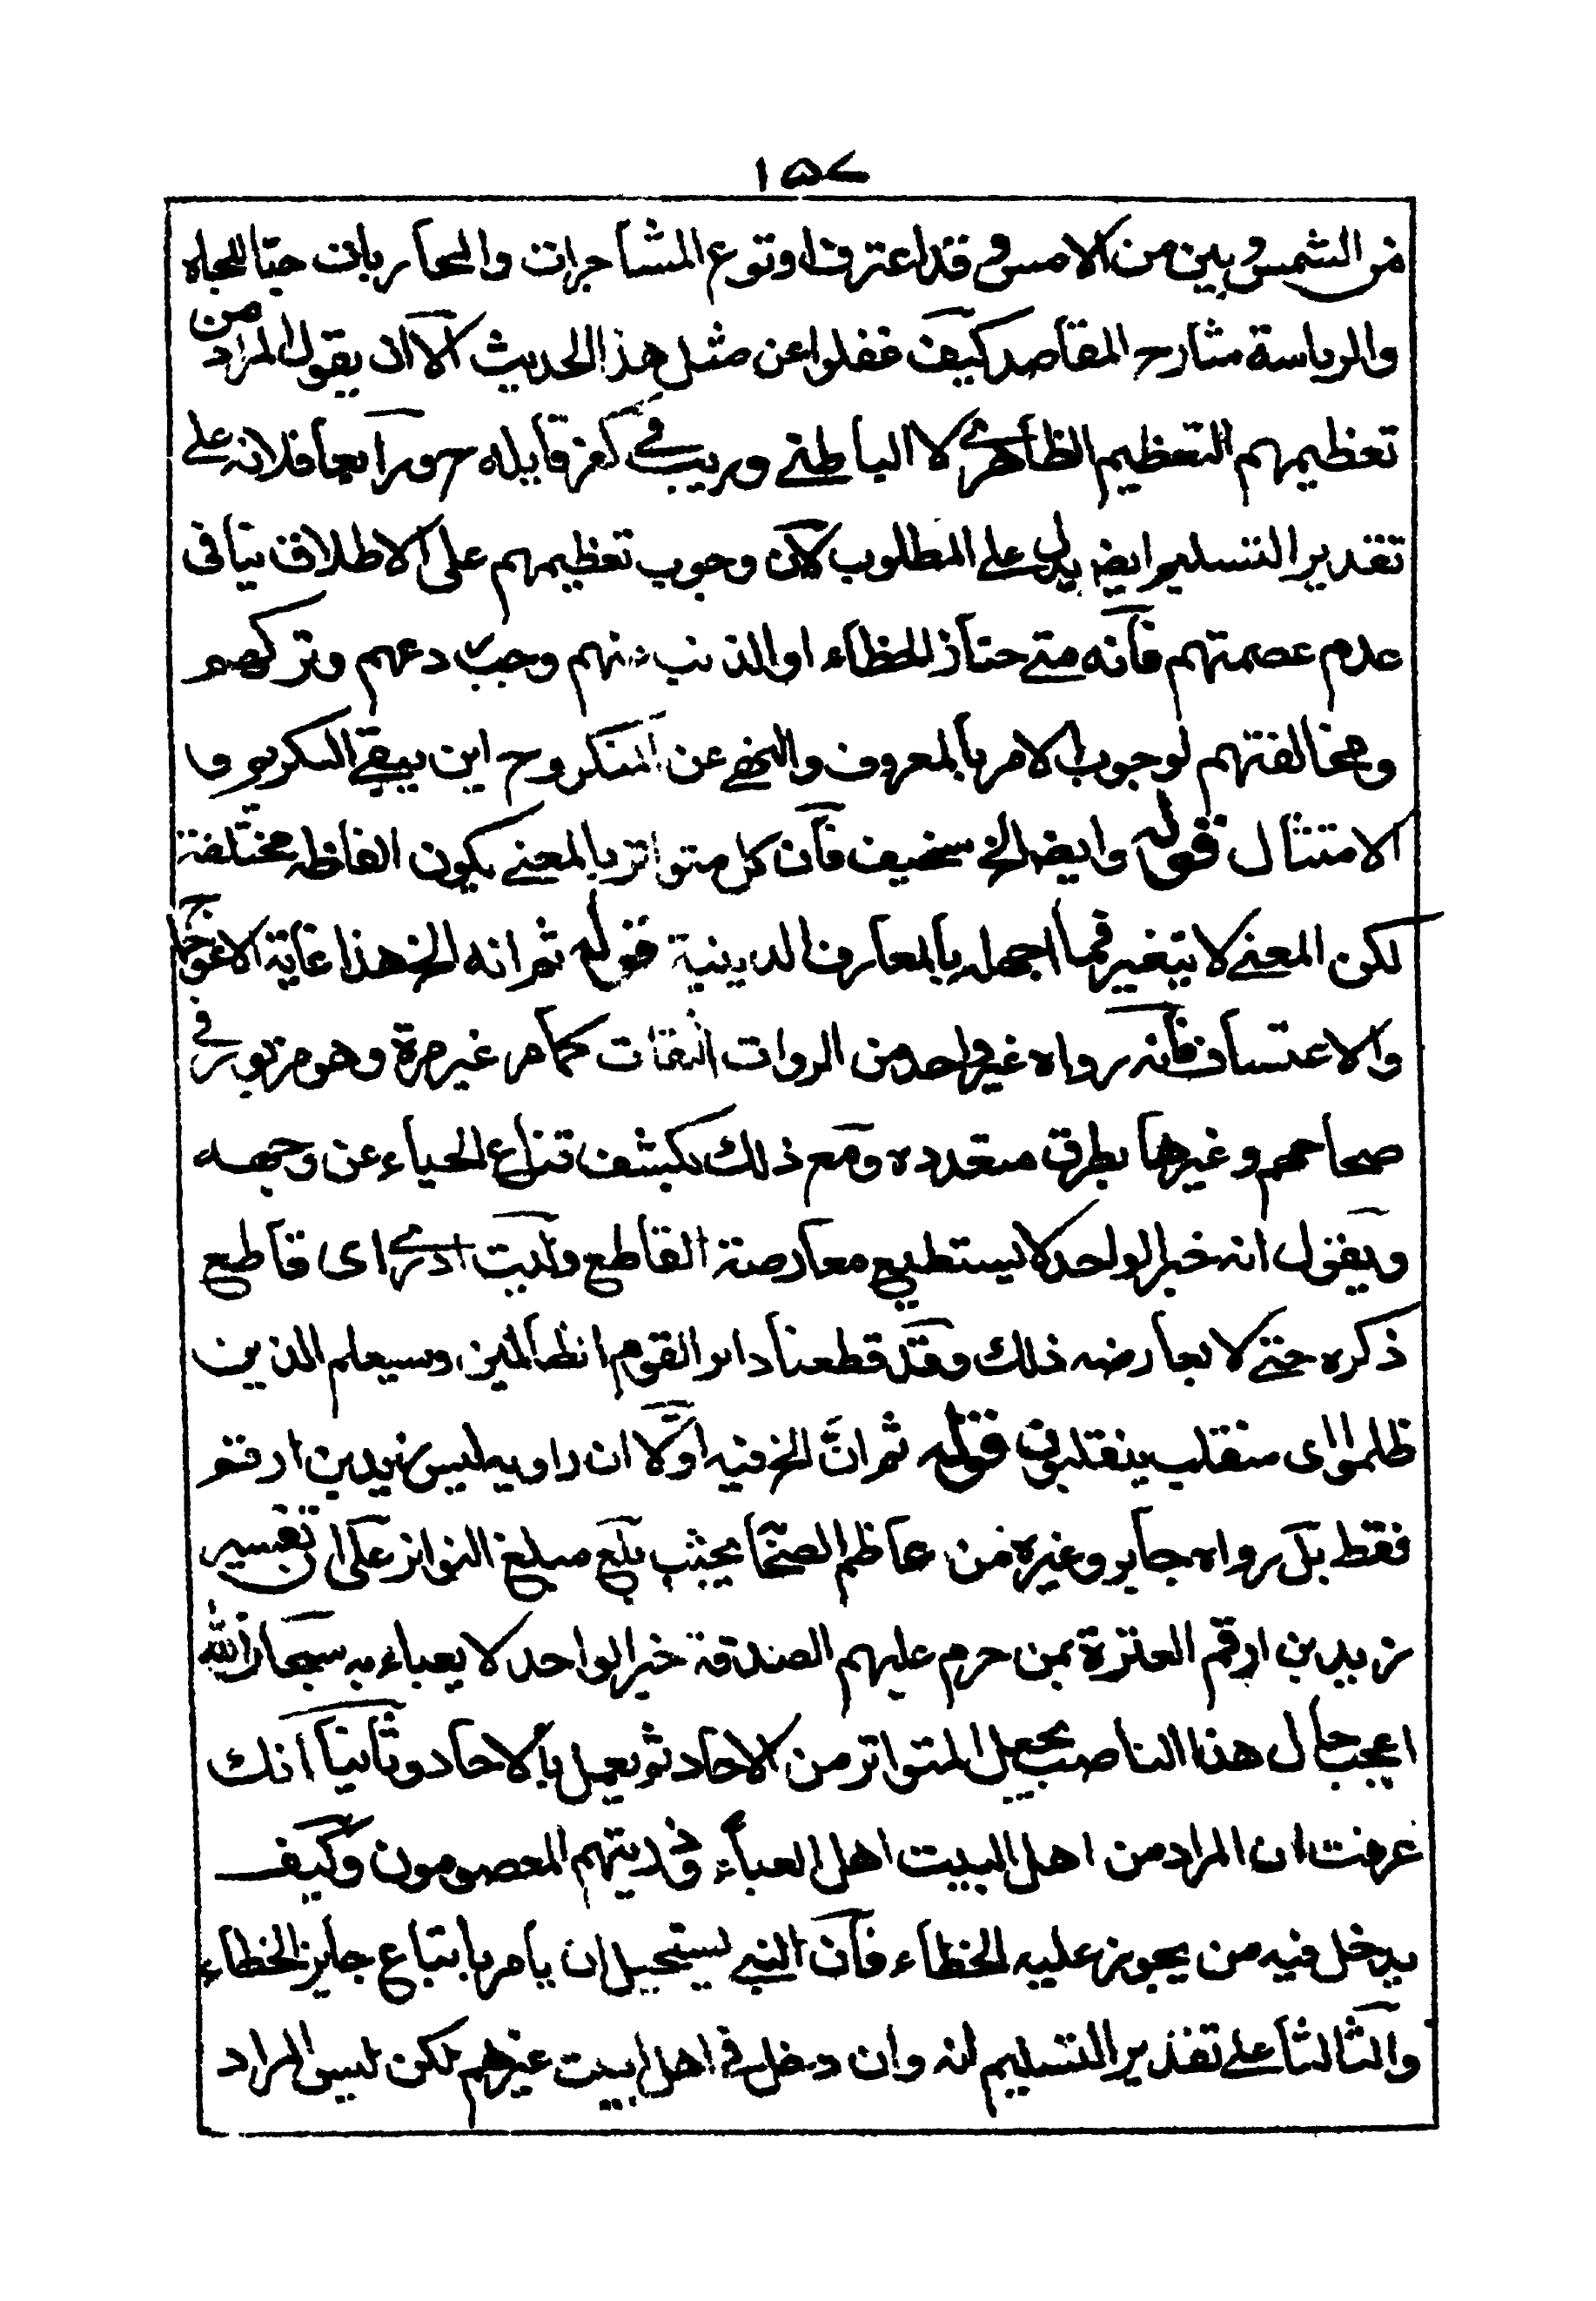 ١٥٧
من الشمس وبين من الامس وقد اعترف او توع المشاجرات والمحاربات حبّا للجاه
والرياسة شارح المقاصد كيف غفلوا عن مثل هذا الحديث الا ان يقول المراد من
تعظيمهم التعظيم الظاهري لا الباطني وريب في كفر قايله ورابعا فلانه على
تقدير التسليم ايضا يدل على المطلوب لان وجوب تعظيمهم على الاطلاق ينافى
عدم عصمتهم فانه متى جاز الخطاء او الذنب منهم وجب دعهم وتركهم
ومخالفتهم لوجوب الامر بالمعروف والنهي عن المنكر وح اين يبقي التكريم و
الامتثال قوله وايضا الخ سخيف فان كل متواتر بالمعنى يكون الفاظه مختلفة
لكن المعنى لا يتغير فما اجهله بالمعارف الدينية قوله ثم انه الخ هذا غاية الاعوجاج
والاعتساف فانه رواه غير واحد من الروات الثقات كما مر غير مرة وهو مزبور في
صحاحهم وغيرها بطرق متعدده ومع ذلك يكشف قناع الحياء عن وجهه
ويقول انه خبر الواحد لا يستطيع معارضة القاطع وليت ادري اى قاطع
ذكره حتى لا يعارضه ذلك وقد قطعنا دابر القوم الظالمين وسيعلم الذين
ظلموا اى منقلب ينقلبون قوله ثم انّ الخ فيه اوّلا ان راويه ليس زيد بن ارقم
فقط بل رواه جابر وغيره من اعاظم الصحابة بحيث بلغ مبلغ التواتر على ان تفسير
زيد بن ارقم العترة بمن حرم عليهم الصدقة خبر الواحد لا يعباء به سبحان الله
اعجب حال هذا الناصب يجعل المتواتر من الاحاد ثم يعمل بالاحاد وثانيا انك
عرفت ان المراد من اهل البيت اهل العباء وذريتهم المعصومون وكيف
يدخل فيه من يجوز عليه الخطاء فان النبي يستحيل ان يامر باتباع جايز الخطاء
والثالثا على تقدير التسليم انه وان دخل في اهل البيت غيرهم لكن ليس المراد